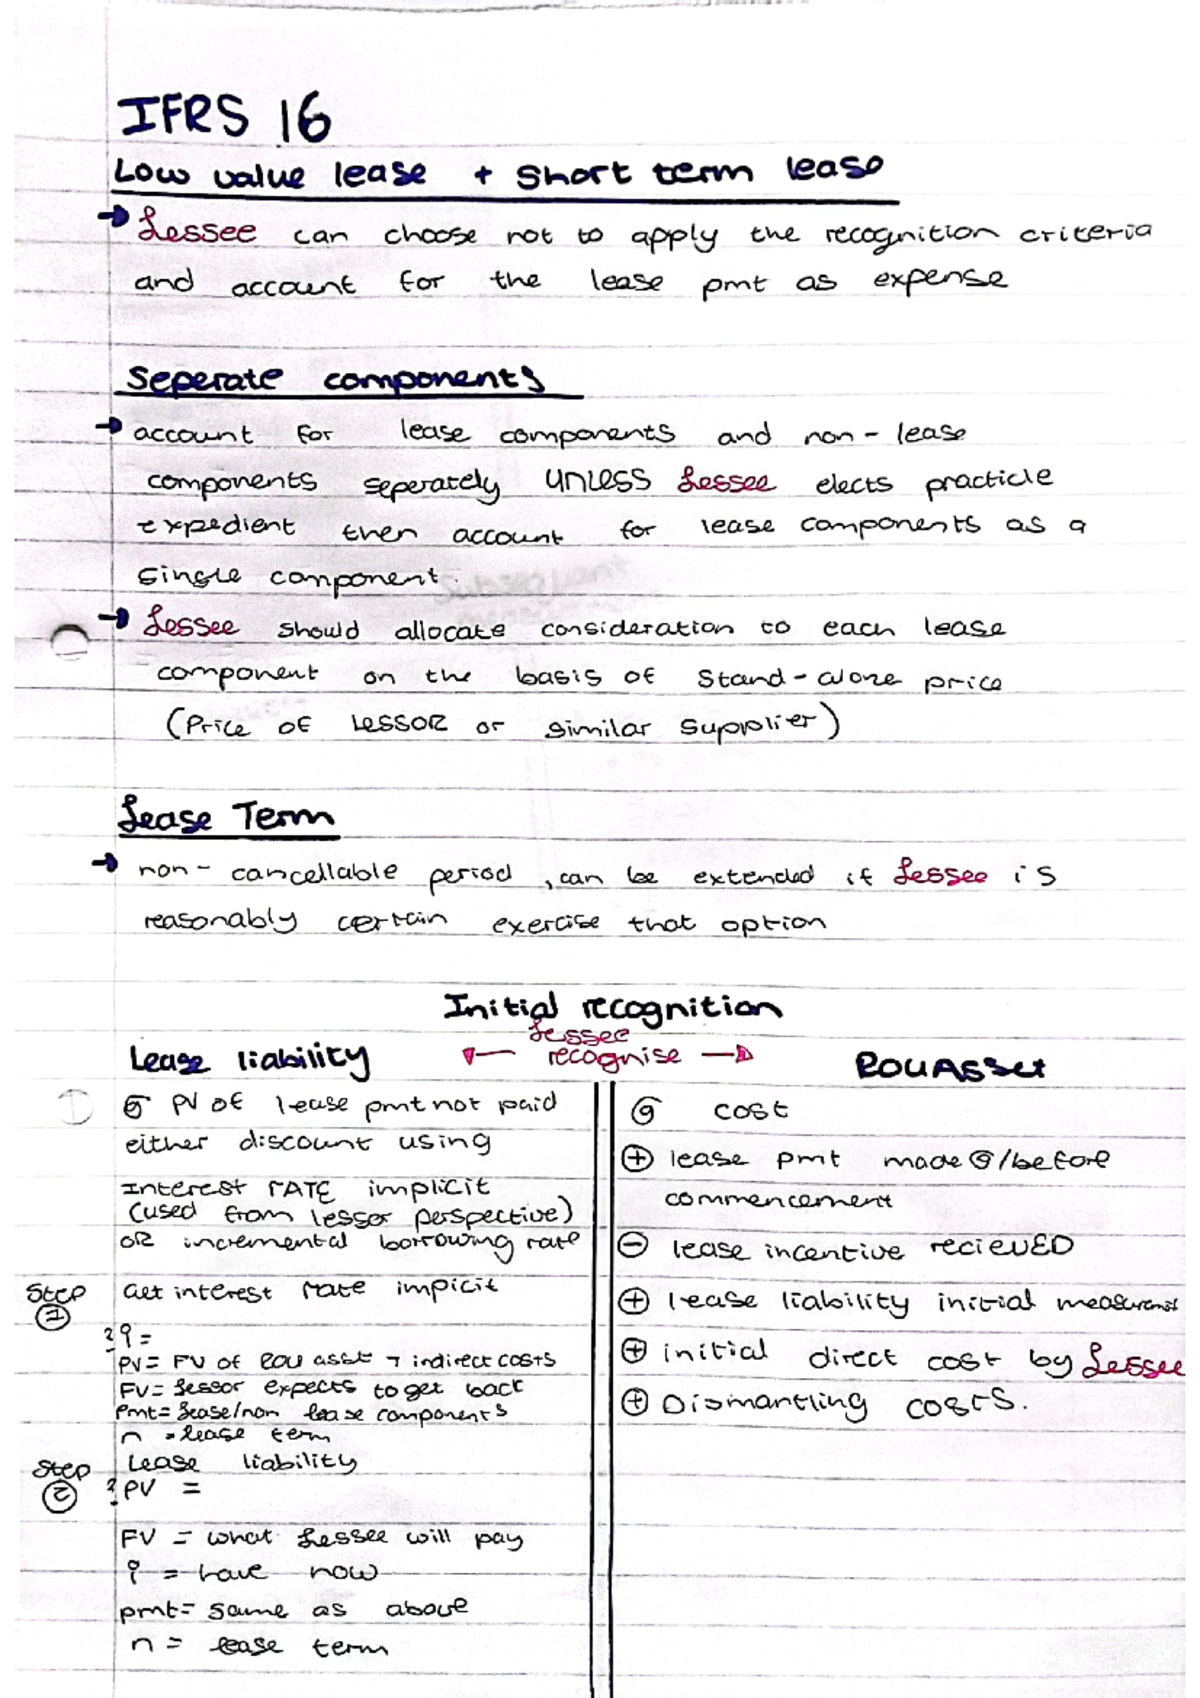 IFRS 16
Low value lease + Short term lease
→ Lessee can choose not to apply the recognition criteria
and account for the lease pmt as expense
Seperate components
→ account for lease components and non-lease
components seperately UNLESS Lessee elects practicle
expedient then account for lease components as a
single component.
→ Lessee should allocate consideration to each lease
component on the basis of stand-alone price
(Price of LESSOR or similar supplier)
Lease Term
→ non-cancellable period, can be extended if Lessee is
reasonably certain exercise that option
Initial recognition
Lessee
Lease liability ← recognise → ROU Asset
@ PV of lease pmt not paid
either discount using
Interest rate implicit
(used from lessor perspective)
OR incremental borrowing rate
Step ① Get interest rate impicit
? i =
PV = FV of ROU asst + indirect costs
FV = Lessor expects to get back
Pmt = Lease/non lease components
n = lease term
Step ② Lease liability
? PV =
FV = what Lessee will pay
i = have now
pmt = same as above
n = lease term
@ cost
⊕ lease pmt made @/before
commencement
⊖ lease incentive recieved
⊕ lease liability initial measurement
⊕ initial direct cost by Lessee
⊕ Dismantling costs.